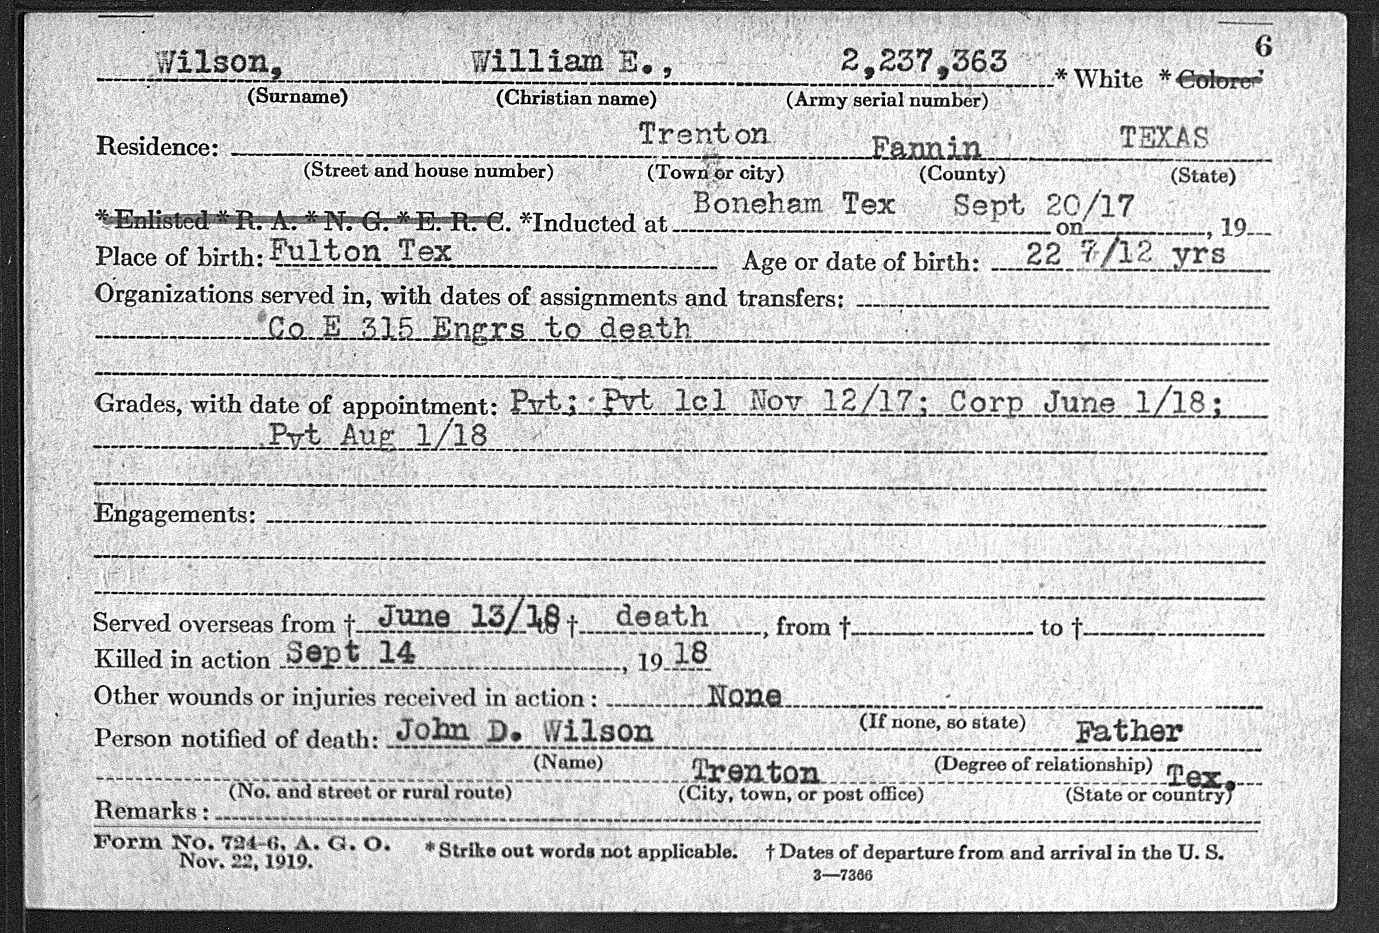 6
Wilson, William E., 2,237,363 * White * Colored
(Surname) (Christian name) (Army serial number)
Residence: Trenton Fannin TEXAS
(Street and house number) (Town or city) (County) (State)
*Enlisted *R. A. *N. G. *E. R. C. *Inducted at Boneham Tex on Sept 20/17, 19
Place of birth: Fulton Tex Age or date of birth: 22 7/12 yrs
Organizations served in, with dates of assignments and transfers:
Co E 315 Engrs to death
Grades, with date of appointment: Pvt; Pvt 1cl Nov 12/17; Corp June 1/18;
Pvt Aug 1/18
Engagements:
Served overseas from † June 13/18 † death, from † to †
Killed in action Sept 14, 1918
Other wounds or injuries received in action: None
(If none, so state)
Person notified of death: John D. Wilson Father
(Name) (Degree of relationship)
Trenton Tex.
(No. and street or rural route) (City, town, or post office) (State or country)
Remarks:
Form No. 724-6, A. G. O. * Strike out words not applicable. † Dates of departure from and arrival in the U. S.
Nov. 22, 1919. 3—7366